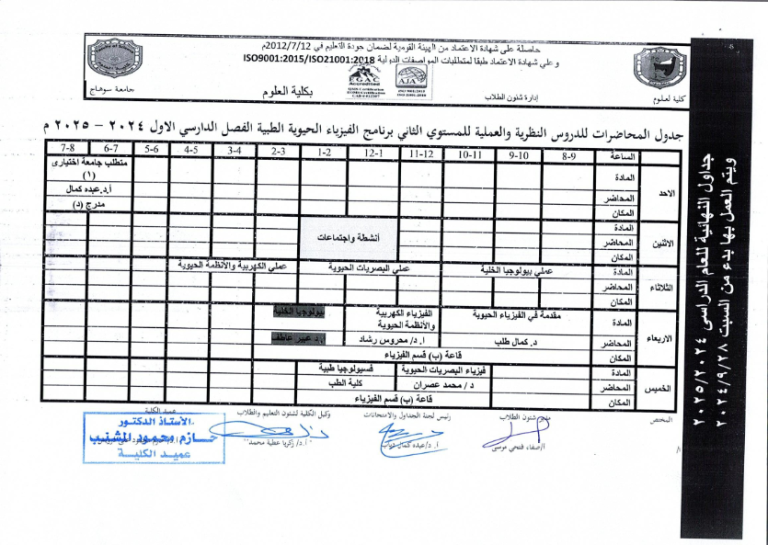 حاصلة علي شهادة الاعتماد من الهيئة القومية لضمان جودة التعليم في 2012/7/12م
وعلي شهادة الاعتماد طبقا لمتطلبات المواصفات الدولية ISO9001:2015/ISO21001:2018
EGAC
AJA
كلية العلوم
إدارة شئون الطلاب
بكلية العلوم
جامعة سوهاج
جدول المحاضرات للدروس النظرية والعملية للمستوي الثاني برنامج الفيزياء الحيوية الطبية الفصل الدارسي الاول ٢٠٢٤ – ٢٠٢٥ م
الساعة 8-9 9-10 10-11 11-12 12-1 1-2 2-3 3-4 4-5 5-6 6-7 7-8
الاحد
المادة متطلب جامعة اختيارى
(١)
المحاضر أ.د.عبده كمال
المكان مدرج (د)
الاثنين
المادة
المحاضر أنشطة واجتماعات
المكان
الثلاثاء
المادة عملي بيولوجيا الخلية عملي البصريات الحيوية عملي الكهربية والأنظمة الحيوية
المحاضر
المكان
الاربعاء
المادة مقدمة في الفيزياء الحيوية الفيزياء الكهربية
والأنظمة الحيوية بيولوجيا الخلية
المحاضر د. كمال طلب ا. د/ محروس رشاد ا.د عبير عاطف
المكان قاعة (ب) قسم الفيزياء
الخميس
المادة فيزياء البصريات الحيوية فسيولوجيا طبية
المحاضر د / محمد عصران كلية الطب
المكان قاعة (ب) قسم الفيزياء
المختص
شئون الطلاب
أ/صفاء فتحي موسى
رئيس لجنة الجداول والامتحانات
أ.د/عبده كمال
وكيل الكلية لشئون التعليم والطلاب
أ.د/ زكريا عطية محمد
عميد الكلية
الأستاذ الدكتور
حازم محمود المشنب
عميد الكلية
جداول النهائية للعام الدراسى ٢٠٢٥/٢٠٢٤
ويتم العمل بها بدء من السبت ٢٠٢٤/٩/٢٨